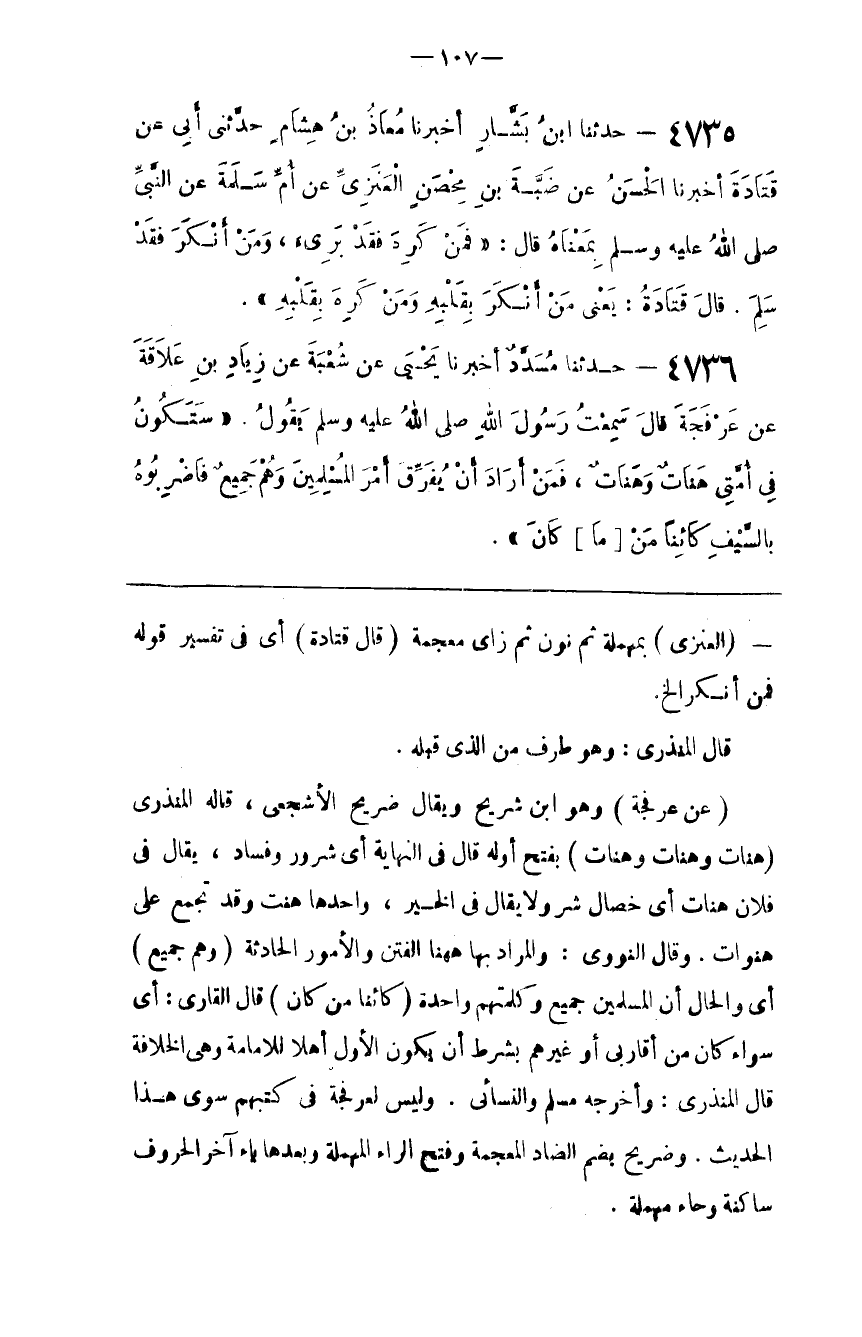 — ١٠٧ —
٤٧٣٥ — حدثنا ابنُ بَشَّـارٍ أخبرنا مُعَاذُ بنُ هِشَامٍ حدَّثنى أَبِي عن
قَتَادَةَ أخبرنا الْحَسَنُ عن ضَبَّـةَ بنِ مِحْصَنٍ الْعَنَزِىِّ عن أُمِّ سَـلَمَةَ عن النَّبىِّ
صلى اللهُ عليه وسـلم بِمَعْنَاهُ قال : « فَمَنْ كَرِهَ فَقَدْ بَرِىءَ ، وَمَنْ أَنْـكَرَ فَقَدْ
سَلِمَ . قالَ قَتَادَةُ : يَعْنى مَنْ أَنْـكَرَ بِقَلْبِهِ وَمَنْ كَرِهَ بِقَلْبِهِ » .
٤٧٣٦ — حـدثنا مُسَدَّدٌ أخبرنا يَحْيَى عن شُعْبَةَ عن زِيَادِ بنِ عَلَاقَةَ
عن عَرْفَجَةَ قالَ سَمِعْتُ رَسُولَ اللهِ صلى اللهُ عليه وسلم يَقُولُ . « سَتَـكُونُ
فِي أُمَّتِي هَنَاتٌ وَهَنَاتٌ ، فَمَنْ أَرَادَ أَنْ يُفَرِّقَ أَمْرَ الْمُسْلِمِينَ وَهُمْ جَمِيعٌ فَاضْرِبُوهُ
بالسَّيْفِ كَائِنًا مَنْ [ مَا ] كَانَ » .
— ( العنزى ) بمهملة ثم نون ثم زاى معجمة ( قال قتادة ) أى فى تفسير قوله
فمن أنـكر الخ.
قال المنذرى : وهو طرف من الذى قبله .
( عن عرفجة ) وهو ابن شريح ويقال ضريح الأشجعى ، قاله المنذرى
( هنات وهنات وهنات ) بفتح أوله قال فى النهاية أى شرور وفساد ، يقال فى
فلان هنات أى خصال شر ولا يقال فى الخـير ، واحدها هنت وقد تجمع على
هنوات . وقال النووى : والمراد بها ههنا الفتن والأمور الحادثة ( وهم جميع )
أى والحال أن المسلمين جميع وكلمتهم واحدة ( كائنا من كان ) قال القارى : أى
سواء كان من أقاربى أو غيرهم بشرط أن يكون الأول أهلا للامامة وهى الخلافة
قال المنذرى : وأخرجه مسلم والنسائى . وليس لعرفجة فى كتبهم سوى هـذا
الحديث . وضريح بضم الضاد المعجمة وفتح الراء المهملة وبعدها ياء آخر الحروف
ساكنة وحاء مهملة .